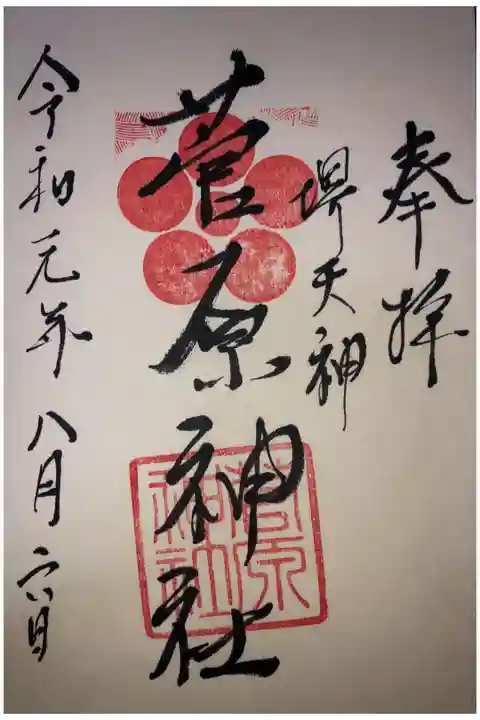 奉拝
堺天神
菅原神社
菅原
神社
令和元年八月六日